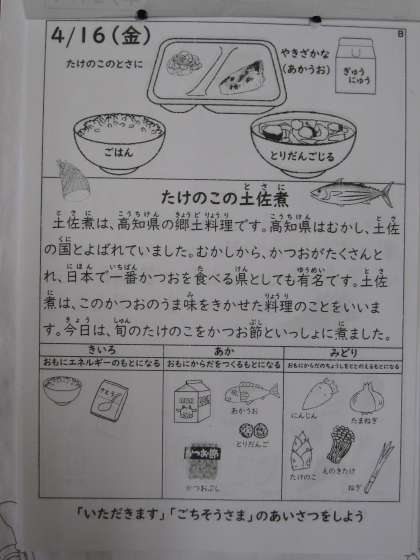 B
4/16(金)
たけのこのとさに
やきざかな
(あかうお)
ぎゅう
にゅう
ごはん
とりだんごじる
たけのこの土佐煮
土佐煮は、高知県の郷土料理です。高知県はむかし、土佐
の国とよばれていました。むかしから、かつおがたくさんと
れ、日本で一番かつおを食べる県としても有名です。土佐
煮は、このかつおのうま味をきかせた料理のことをいいま
す。今日は、旬のたけのこをかつお節といっしょに煮ました。
きいろ
あか
みどり
おもにエネルギーのもとになる
おもにからだをつくるもとになる
おもにからだのちょうしをととのえるもとになる
さとう
あかうお
とりだんご
かつお節
かつおぶし
にんじん
たまねぎ
たけのこ
えのきたけ
ねぎ
「いただきます」「ごちそうさま」のあいさつをしよう